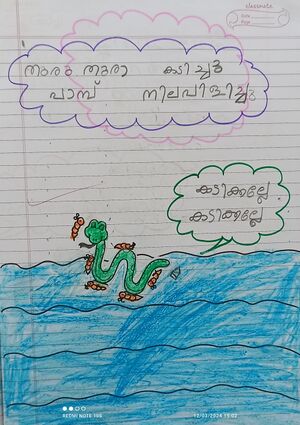 classmate
Date
Page
തുരു തുരാ കടിച്ചു
പാമ്പ് നിലവിളിച്ചു
കടിക്കല്ലേ
കടിക്കല്ലേ
REDMI NOTE 10S
12/03/2024 15:02